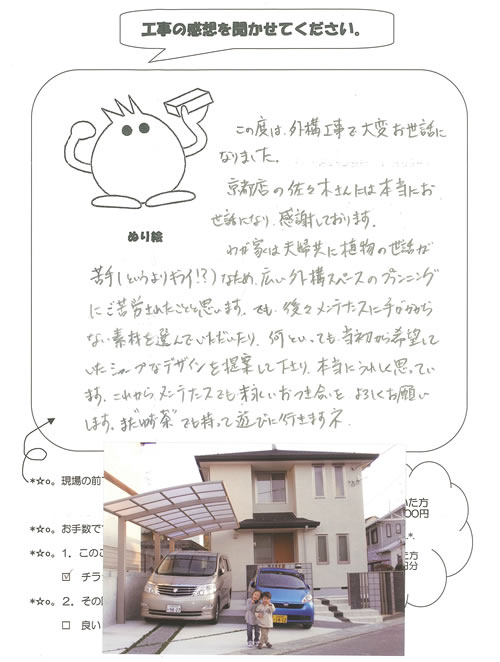 工事の感想を聞かせてください。
この度は、外構工事で大変お世話に
なりました。
京都店の佐々木さんには本当にお
世話になり、感謝しております。
わが家は夫婦共に植物の世話が
ぬり絵
苦手(というよりキライ!?)なため、広い外構スペースのプランニング
にご苦労されたことと思います。でも、後々メンテナンスに手がかから
ない素材を選んでいただいたり、何といっても当初から希望して
いたシャープなデザインを提案して下さり、本当にうれしく思ってい
ます。これからメンテナンスでも末永いおつき合いをよろしくお願い
します。また"
茶"でも持って遊びに行きますネ。
*☆。現場の前
いた方
00円
*☆。お手数で
*☆。1. このこ
た方
☑ チラ
*☆。2. その
□ 良い